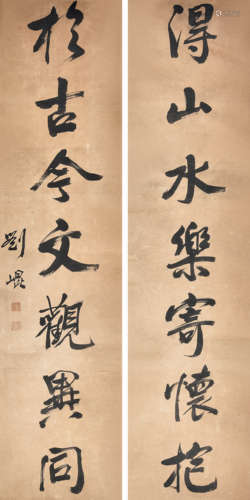 得山水樂寄懷抱
於古今文觀異同
劉崐